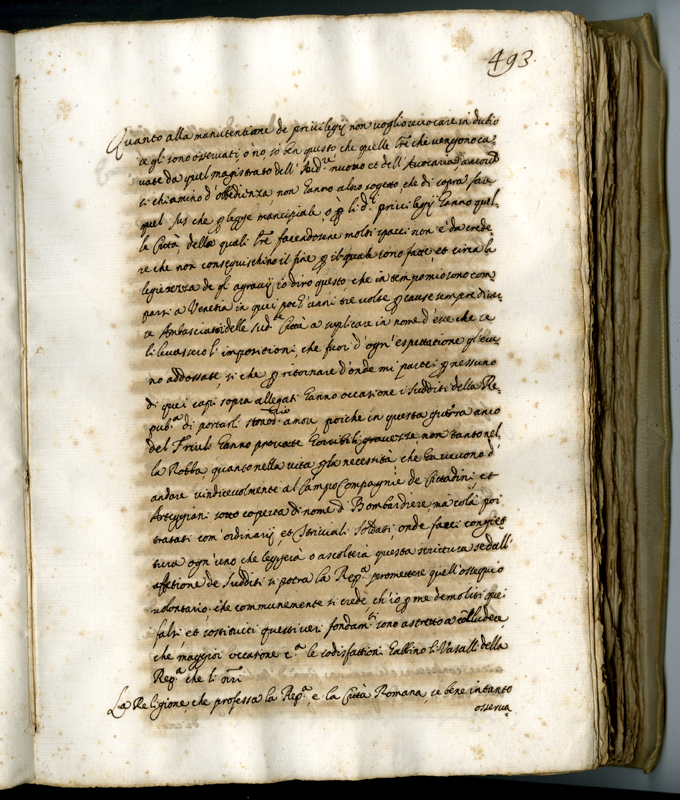 493.
Quanto alla manutentione de privilegij non voglio revocare in dubio
se gli sono osservati ò nò, so ben questo che quelle lre che vengono ca
vate da quel magistrato dell' et dell' Avocaria, ancor
si chiamino d'obedienza, non hanno altro sogetto che di sopra fare
quel Jus che legge municipale, ò li d. privilegij hanno quel
la Città, delle quali lre facendosene molti spacci non è da crede
re che non conseguischino il fine il quale sono fatte, et circa la
legierezza de gli agravij, io dirò questo, che in tempo mio sono com
parsi a Venetia in quei pochi anni tre volte cause sempre diver
se Ambasciatori delle sud.te Città a suplicare in nome d'esse che se
li levassero l'impositioni, che fuori d'ogn'espettatione gl'era
no adossate, si che ritornare d'onde mi partei nessuno
di quei capi sopra allegati hanno occasione i sudditi della Re
pub.a di portarli amore, poiche in questa guerra anco
del Friuli hanno provate horribili gravezze non tanto nel
la Robba, quanto nella vita la necessità che havevono d'
andare vindicevolmente al Campo Compagnie de Cittadini et
Arteggiani sotto coperta di nome d'Bombardiere, ma colà poi
tratati com'ordinarij et triviali soldati, onde facci congiet
tura ogn'uno che leggerà o ascolterà questa scrittura se dall'
affetione de sudditi si potrà la Rep.a promettere quell'ossequio
volontario, che communemente si crede, ch'io me demoliti quei
falsi et sostituiti questi veri fondam.ti sono astretto a colludere
che maggior occasione le sodisfattioni habbino li Vasalli della
Rep.a che li nri
La Religione, che professa la Rep.a e la Città Romana, se bene in tanto
osserva